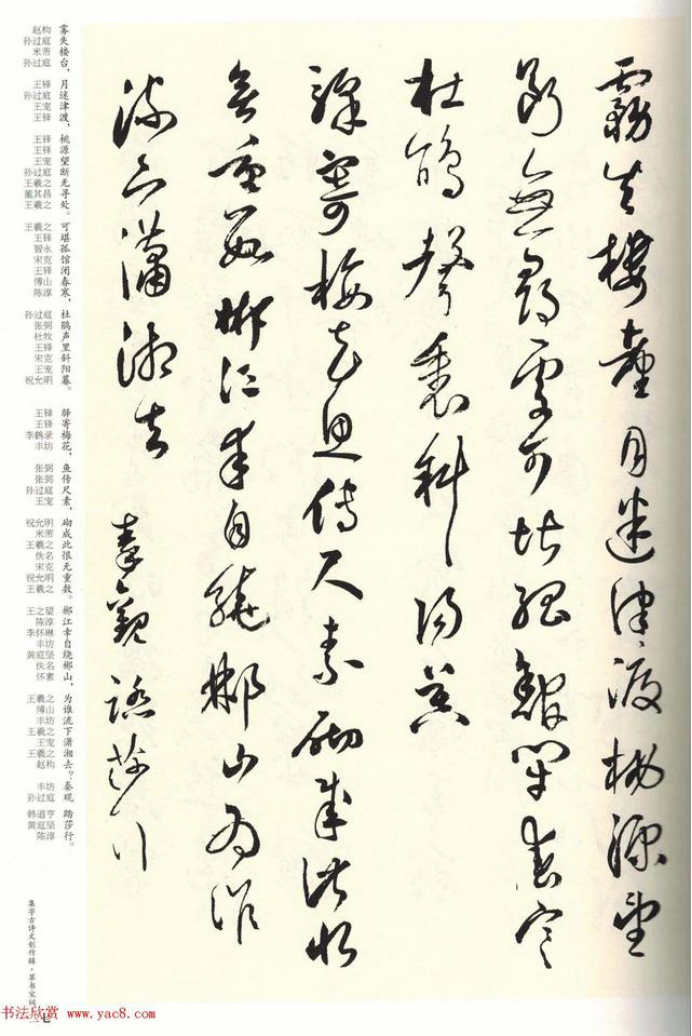 霧失樓臺月迷津渡桃源望
斷無尋處可堪孤館閉春寒
杜鵑聲裏斜陽暮
驛寄梅花魚傳尺素砌成此恨
無重數郴江幸自繞郴山為誰
流下瀟湘去 秦觀 踏莎行
雾失楼台，月迷津渡，桃源望断无寻处。可堪孤馆闭春寒，杜鹃声里斜阳暮。驿寄梅花，鱼传尺素，砌成此恨无重数。郴江幸自绕郴山，为谁流下潇湘去？秦观 踏莎行。
赵构
孙过庭
米芾
孙过庭
王铎
孙过庭
王宠
王铎
王铎
王铎
王宠
孙过庭
王羲之
董其昌
王羲之
王羲之
王铎
智永
宋克
王铎
傅山
陈淳
孙过庭
张弼
杜牧
王铎
宋克
王宠
祝允明
王铎
王铎
丰坊
张弼
张弼
孙过庭
王宠
祝允明
米芾
王羲之
佚名
宋克
祝允明
王羲之
王之望
陈淳
李怀琳
丰坊
黄庭坚
佚名
怀素
王羲之
傅山
丰坊
王羲之
王宠
王羲之
赵构
丰坊
孙过庭
韩道亨
黄庭坚
陈淳
集字古诗文创作辑·草书宋词
二七
书法欣赏 www.yac8.com